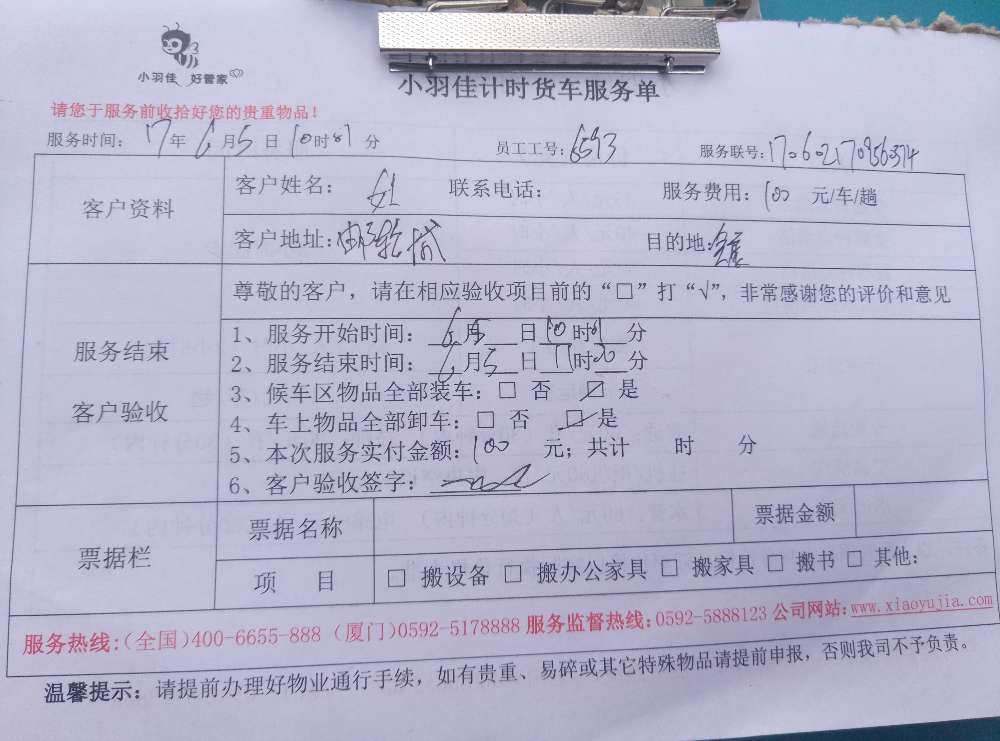 小羽佳 好管家
小羽佳计时货车服务单
请您于服务前收拾好您的贵重物品！
服务时间： 17年 6月 5日 10时 分 员工工号： 6593 服务联号：
客户资料
客户姓名： 联系电话： 服务费用：100 元/车/趟
客户地址： 目的地：
服务结束
客户验收
尊敬的客户，请在相应验收项目前的“□”打“√”，非常感谢您的评价和意见
1、服务开始时间： 6月5日10时 分
2、服务结束时间： 6月5日11时00分
3、候车区物品全部装车：□ 否 ☑ 是
4、车上物品全部卸车：□ 否 ☑ 是
5、本次服务实付金额：100 元；共计 时 分
6、客户验收签字：
票据栏
票据名称 票据金额
项 目 □ 搬设备 □ 搬办公家具 □ 搬家具 □ 搬书 □ 其他：
服务热线：（全国）400-6655-888（厦门）0592-5178888 服务监督热线：0592-5888123 公司网站：www.xiaoyujia.com
温馨提示：请提前办理好物业通行手续，如有贵重、易碎或其它特殊物品请提前申报，否则我司不予负责。